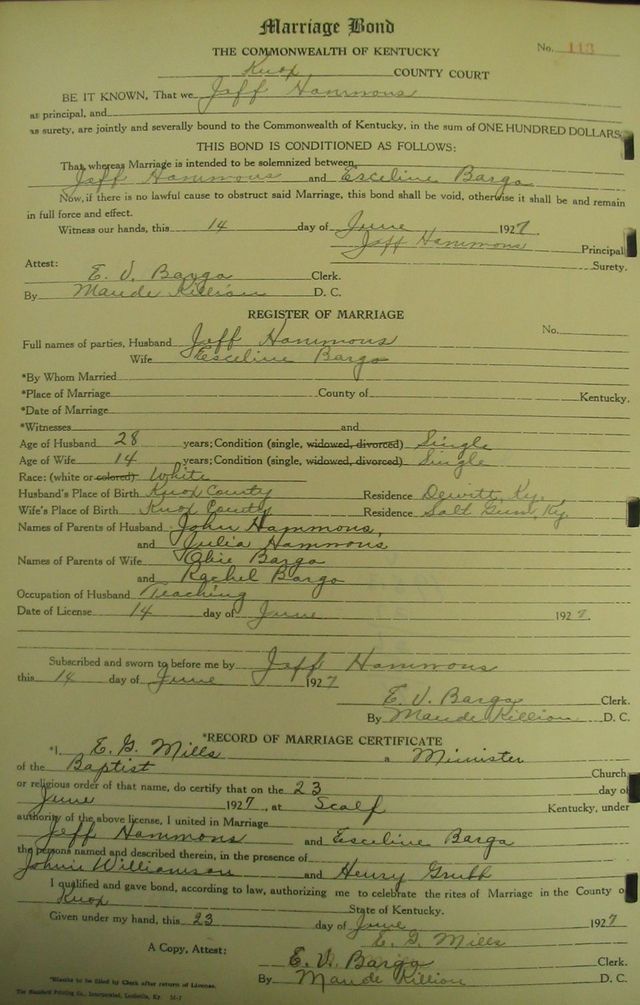 Marriage Bond
THE COMMONWEALTH OF KENTUCKY
No. 113
Knox COUNTY COURT
BE IT KNOWN, That we Jaff Hammons
as principal, and
as surety, are jointly and severally bound to the Commonwealth of Kentucky, in the sum of ONE HUNDRED DOLLARS
THIS BOND IS CONDITIONED AS FOLLOWS:
That whereas Marriage is intended to be solemnized between
Jaff Hammons and Esceline Bargo
Now, if there is no lawful cause to obstruct said Marriage, this bond shall be void, otherwise it shall be and remain
in full force and effect.
Witness our hands, this 14 day of June 1927
Jaff Hammons Principal
Surety.
Attest:
E. V. Bargo Clerk.
By Maude Killion D. C.
REGISTER OF MARRIAGE
No.
Full names of parties, Husband Jaff Hammons
Wife Esceline Bargo
*By Whom Married
*Place of Marriage County of Kentucky.
*Date of Marriage
*Witnesses and
Age of Husband 28 years; Condition (single, widowed, divorced) Single
Age of Wife 14 years; Condition (single, widowed, divorced) Single
Race: (white or colored) White
Husband's Place of Birth Knox County Residence Dewitt, Ky.
Wife's Place of Birth Knox County Residence Salt Gum, Ky.
Names of Parents of Husband John Hammons,
and Julia Hammons
Names of Parents of Wife Obie Bargo
and Rachel Bargo
Occupation of Husband Teaching
Date of License 14 day of June 1927.
Subscribed and sworn to before me by Jaff Hammons
this 14 day of June 1927
E. V. Bargo Clerk.
By Maude Killion D. C.
*RECORD OF MARRIAGE CERTIFICATE
*I, E. G. Mills a Minister
of the Baptist Church,
or religious order of that name, do certify that on the 23 day of
June 1927, at Scalf Kentucky, under
authority of the above license, I united in Marriage
Jeff Hammons and Esceline Bargo
the persons named and described therein, in the presence of
Johnie Williamson and Henry Grubb
I qualified and gave bond, according to law, authorizing me to celebrate the rites of Marriage in the County of
Knox State of Kentucky.
Given under my hand, this 23 day of June 1927
E. G. Mills
A Copy, Attest: E. V. Bargo Clerk.
By Maude Killion D. C.
*Blanks to be filled by Clerk after return of License.
The Standard Printing Co., Incorporated, Louisville, Ky.